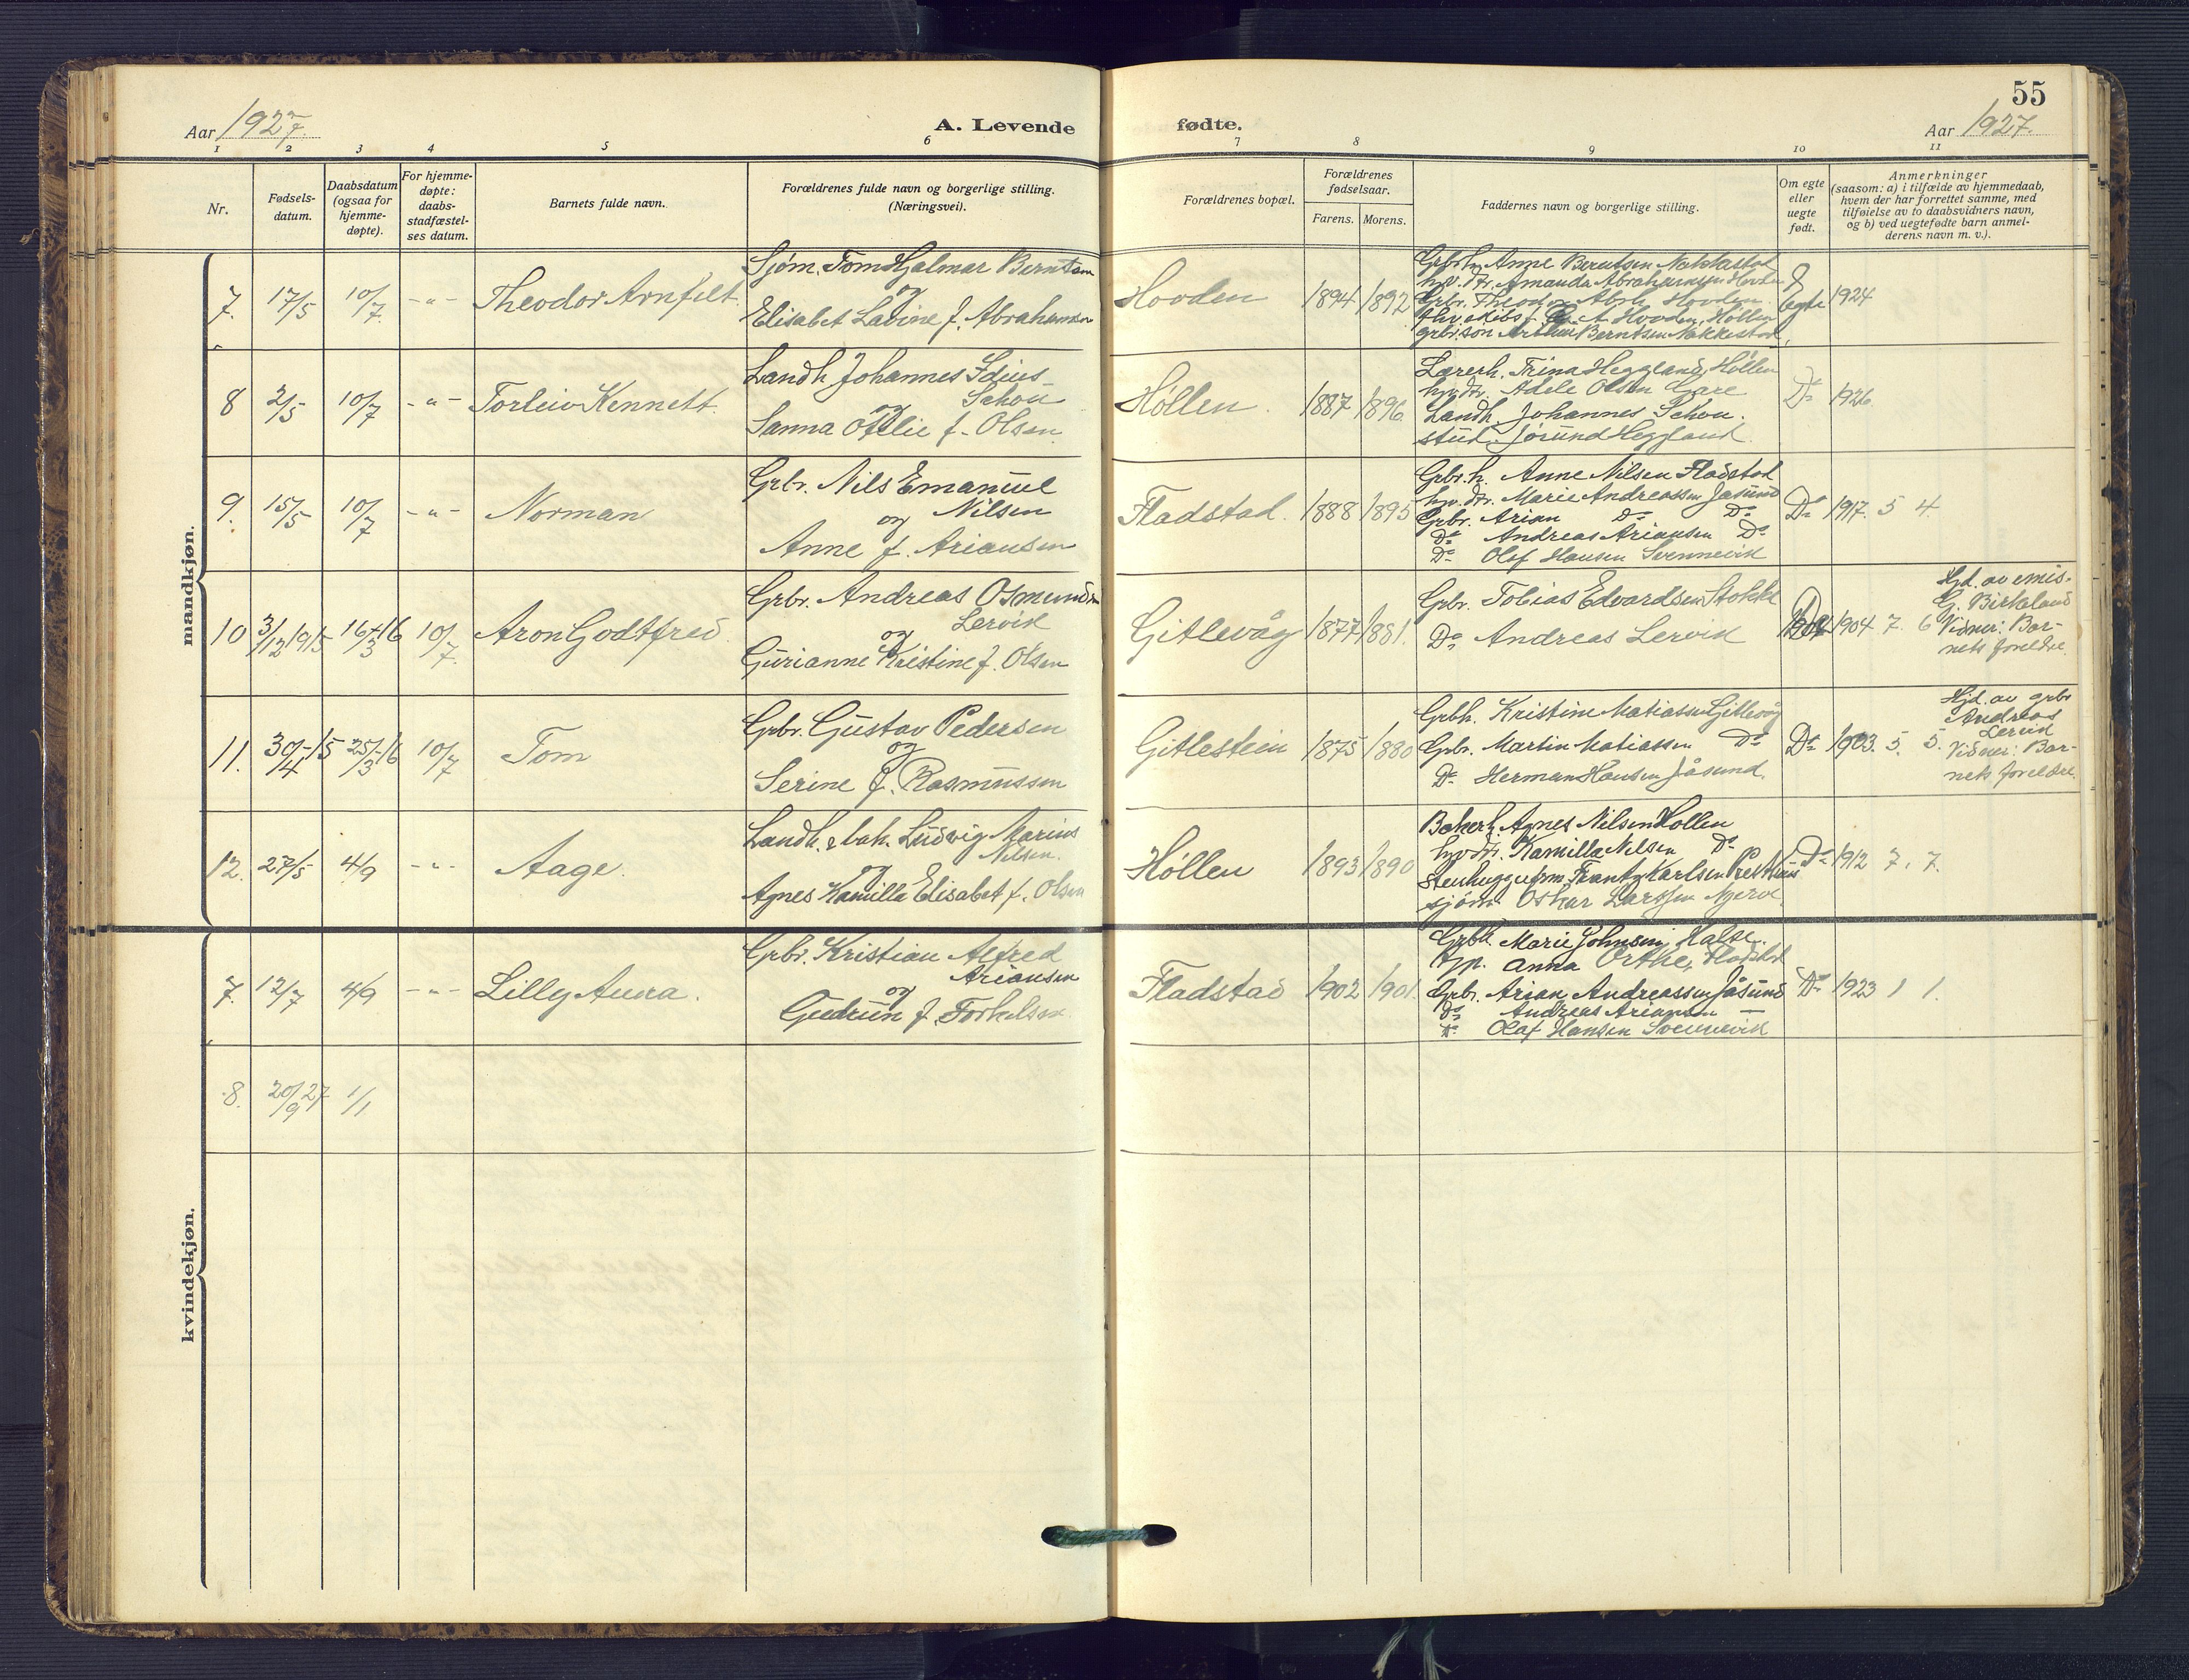 55
Aar 1927.
A. Levende
fødte.
Aar 1927.
1 2 3 4 5 6 7 8 9 10 11
Nr.
Fødsels-
datum.
Daabsdatum
(ogsaa for
hjemme-
døpte).
For hjemme-
døpte:
daabs-
stadfæstel-
ses datum.
Barnets fulde navn.
Forældrenes fulde navn og borgerlige stilling.
(Næringsvei).
Forældrenes bopæl.
Forældrenes
fødselsaar.
Farens. Morens.
Faddernes navn og borgerlige stilling.
Om egte
eller
uegte
født.
Anmerkninger
(saasom: a) i tilfælde av hjemmedaab,
hvem der har forrettet samme, med
tilføielse av to daabsvidners navn,
og b) ved uegtefødte barn anmel-
derens navn m. v.).
mandkjøn.
7. 17/5 10/7 -"- Theodor Arnfelt.
Sjøm. Tom Hjalmar Berntsen
og
Elisabet Lavine f. Abrahamsen
Hovden 1894 1892
Grbrh. Anne Berntsen Nakkestad
hv. dtr. Amanda Abrahamsen Hovden
Grbr. Theodor Abrh. Hovden
A. Hovden, Høllen
grbr.søn Arthur Berntsen Nakkestad
egte 1924
8 2/5 10/7 -"- Torleiv Kennett.
Landh. Johannes Idius
Schou
og
Sanna Otelie f. Olsen
Høllen. 1887 1896
Lærerh. Trina Heggland, Høllen
hv. dtr. Adele Olsen Gare
Landh. Johannes Schou.
stud. Jørund Heggland
Do 1926
9. 15/5 10/7 -"- Norman
Grbr. Nils Emanuel
Nilsen
og
Anne f. Ariansen
Fladstad. 1888 1895
Grbr.h. Anne Nilsen Fladstad
hv. dtr. Marie Andreassen Jåsund
Grbr. Arian Do Do
Do Andreas Ariansen Do
Do Olaf Hansen Svennevik
Do 1917. 5 4.
10 3/12 1915 16/3 16 10/7 Aron Godtfred.
Grbr. Andreas Osmundsen
Lervik
og
Gurianne Kristine f. Olsen
Gitlevåg 1877 1881.
Grbr. Tobias Edvardsen Stokke
Do Andreas Lervik
1904 7. 6
Hjd. av emis.
G. Birkeland
Vidner: Bar-
nets foreldre.
11. 30/4-15 25/3-16 10/7 Tom
Grbr. Gustav Pedersen
og
Serine f. Rasmussen
Gitlestein 1875 1880
Grbh. Kristine Matiassen Gitlevåg
Grbr. Martin Matiassen Do
Do Herman Hansen Jåsund.
Do 1903. 5. 5.
Hjd. av grbr
Andreas
Lervik
Vidner: Bar-
nets foreldre.
12. 27/5 4/9 -"- Aage.
Landh. & bak. Ludvig Marius
Nilsen.
og
Agnes Kamilla Elisabet f. Olsen
Høllen 1893 1890
Bakerh. Agnes Nilsen Høllen
hv. dtr. Kamilla Nilsen Do
Frantz Karlsen
sjøm. Oskar Larssen
Do 1912 7. 7.
kvindekjøn.
7. 12/7 4/9 -"- Lilly Anna.
Grbr. Kristian Alfred
Ariansen
og
Gudrun f. Torkelsen.
Fladstad 1902 1901.
Grbh. Marie Johnsen, Halse.
Anna Fladstad
Grbr. Arian Andreassen Jåsund
Do Andreas Ariansen —
Do Olaf Hansen Svennevik
Do 1923 1 1.
8. 20/9 27 1/1